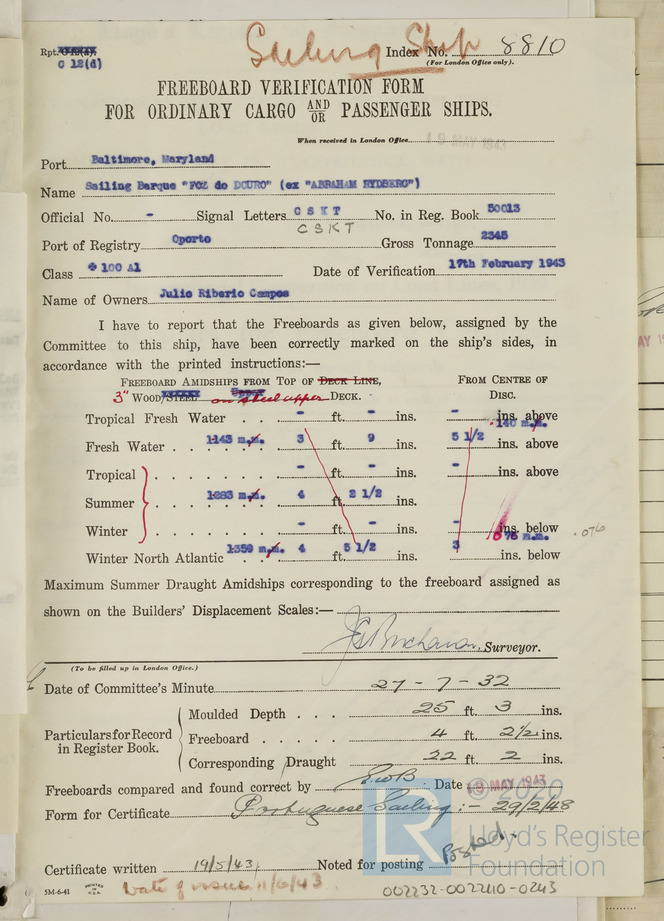 Rpt. C 12(d)
Sailing Ship
Index No. 8810
(For London Office only).
FREEBOARD VERIFICATION FORM
FOR ORDINARY CARGO AND/OR PASSENGER SHIPS.
When received in London Office 19 MAY 1943
Port Baltimore, Maryland
Name Sailing Barque "FOZ do DOURO" (ex "ABRAHAM RYDBERG")
Official No. - Signal Letters C S K T No. in Reg. Book 50013
C S K T
Port of Registry Oporto Gross Tonnage 2345
Class ✠ 100 A1 Date of Verification 17th February 1943
Name of Owners Julio Riberio Campos
I have to report that the Freeboards as given below, assigned by the
Committee to this ship, have been correctly marked on the ship's sides, in
accordance with the printed instructions:—
FREEBOARD AMIDSHIPS FROM TOP OF DECK LINE, FROM CENTRE OF
3" WOOD/STEEL on steel upper DECK. DISC.
Tropical Fresh Water - ft. - ins. - ins. above
140 m.m.
Fresh Water 1143 m.m. 3 ft. 9 ins. 5 1/2 ins. above
Tropical - ft. - ins. - ins. above
Summer 1283 m.m. 4 ft. 2 1/2 ins.
Winter - ft. - ins. - ins. below
76 m.m. .076
Winter North Atlantic 1359 m.m. 4 ft. 5 1/2 ins. 3 ins. below
Maximum Summer Draught Amidships corresponding to the freeboard assigned as
shown on the Builders' Displacement Scales:—
Buchanan, Surveyor.
(To be filled up in London Office.)
Date of Committee's Minute 27-7-32
Particulars for Record in Register Book.
Moulded Depth 25 ft. 3 ins.
Freeboard 4 ft. 2½ ins.
Corresponding Draught 22 ft. 2 ins.
Freeboards compared and found correct by E.W.B Date 19 MAY 1943
© 2020
Form for Certificate Portuguese Sailing :- 29/2/48
LR Lloyd's Register
Foundation
Certificate written 19/5/43 Noted for posting Posted.
5M-6-41 PRINTED IN U.S.A. Date of issue 11/6/43.
002232-002240-0243